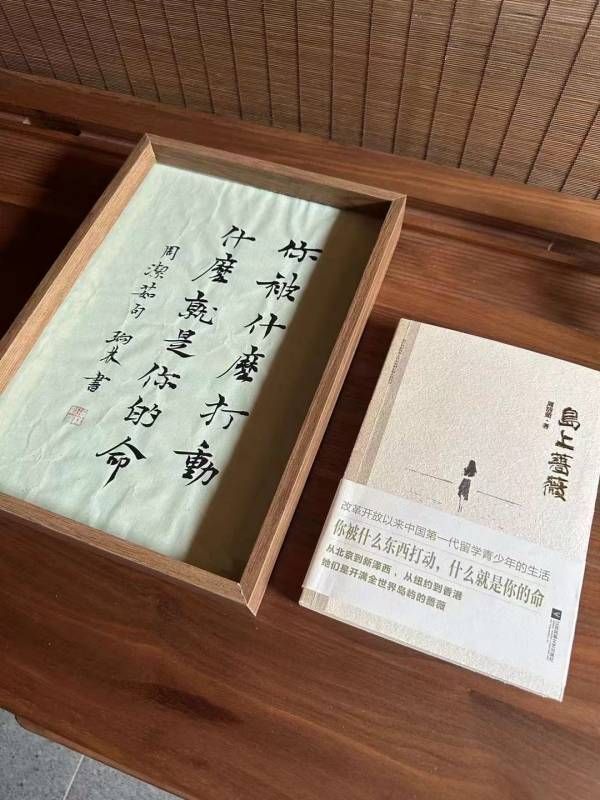 你被什麼打動
什麼就是你的命
周潔茹句 書
島上薔薇
周潔茹·著
改革开放以来中国第一代留学青少年的生活
你被什么东西打动，什么就是你的命
从北京到新泽西，从纽约到香港
她们是开满全世界岛屿的蔷薇